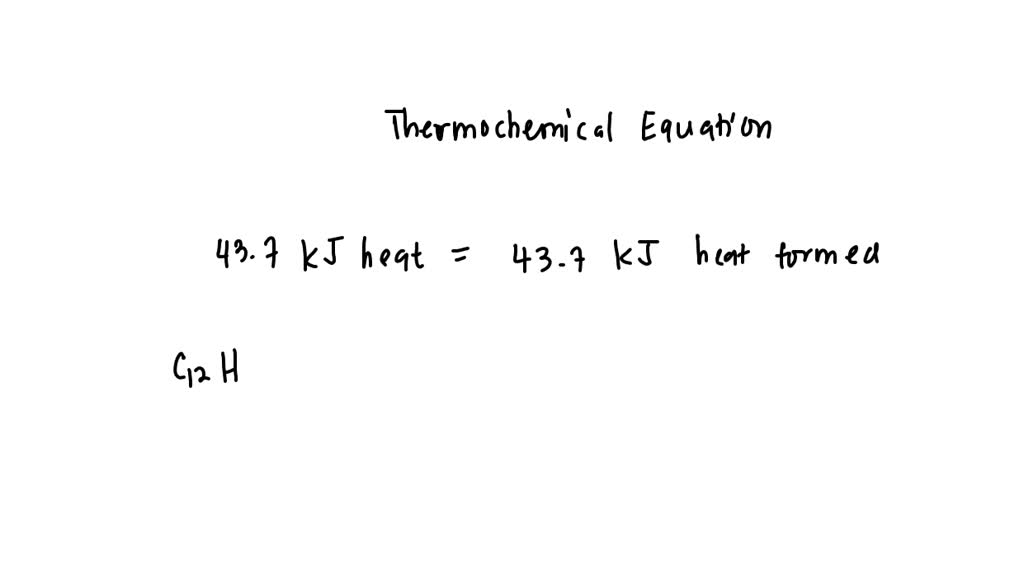 Thermochemical Equation
43.7 kJ heat = 43.7 kJ heat formed
C₁₂ H